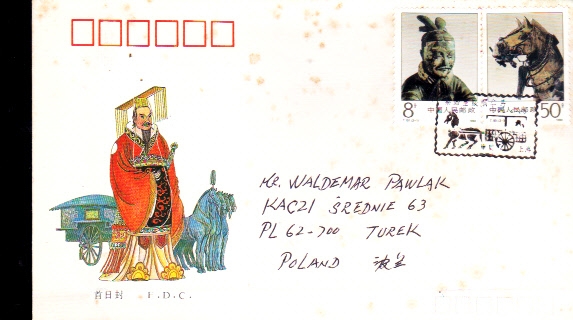 8分
中国人民邮政
50分
中国人民邮政
MR. WALDEMAR PAWLAK
KACZI ŚREDNIE 63
PL 62-700 TUREK
POLAND 波兰
首日封 F.D.C.